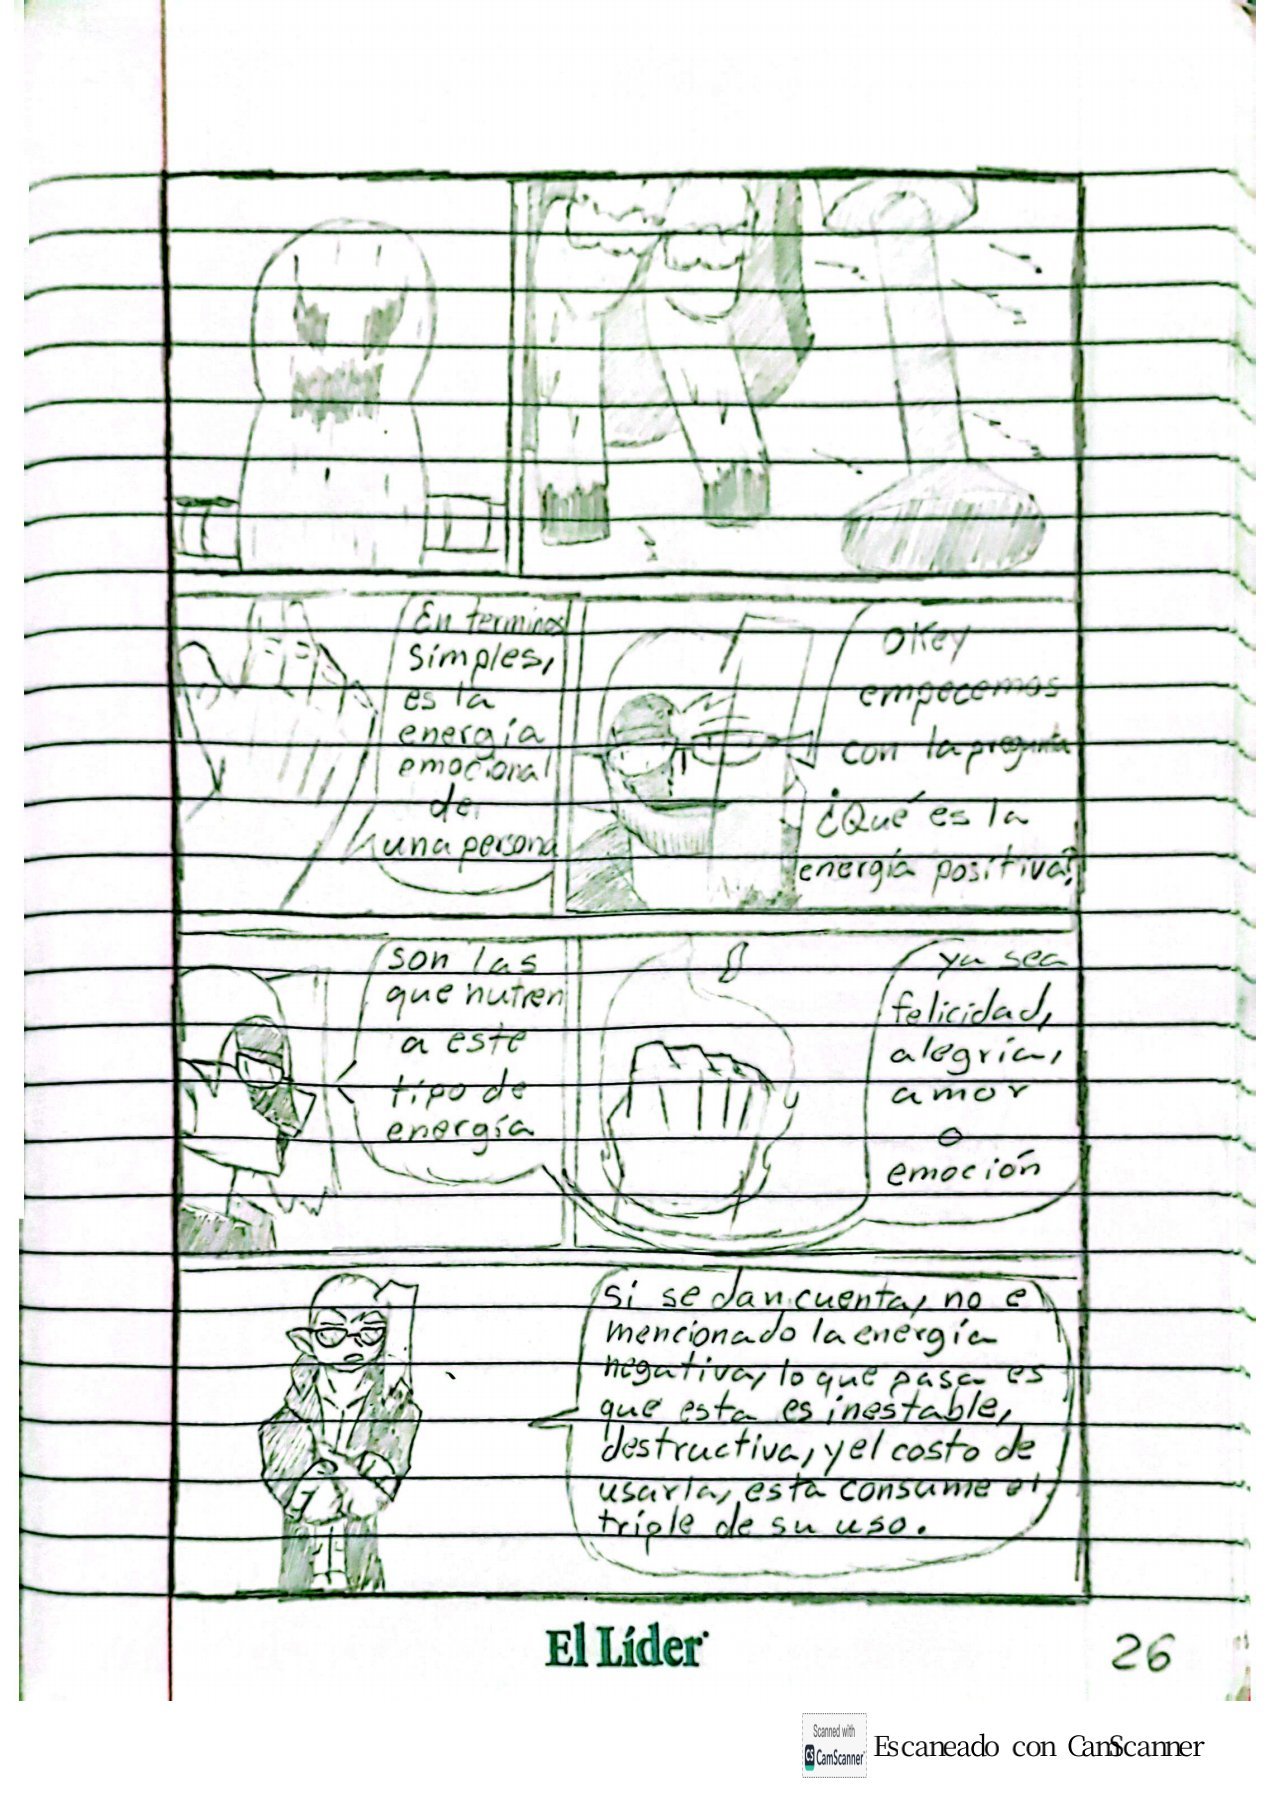 OKey
empecemos
con la pregunta
¿Qué es la
energía positiva?
En terminos
simples,
es la
energía
emocional
de
una persona
ya sea
felicidad,
alegría,
amor
o
emoción
son las
que nutren
a este
tipo de
energía
si se dan cuenta, no e
mencionado la energía
negativa, lo que pasa es
que esta es inestable,
destructiva, y el costo de
usarla, esta consume el
triple de su uso.
El Líder
26
Scanned with
CS CamScanner
Escaneado con CamScanner